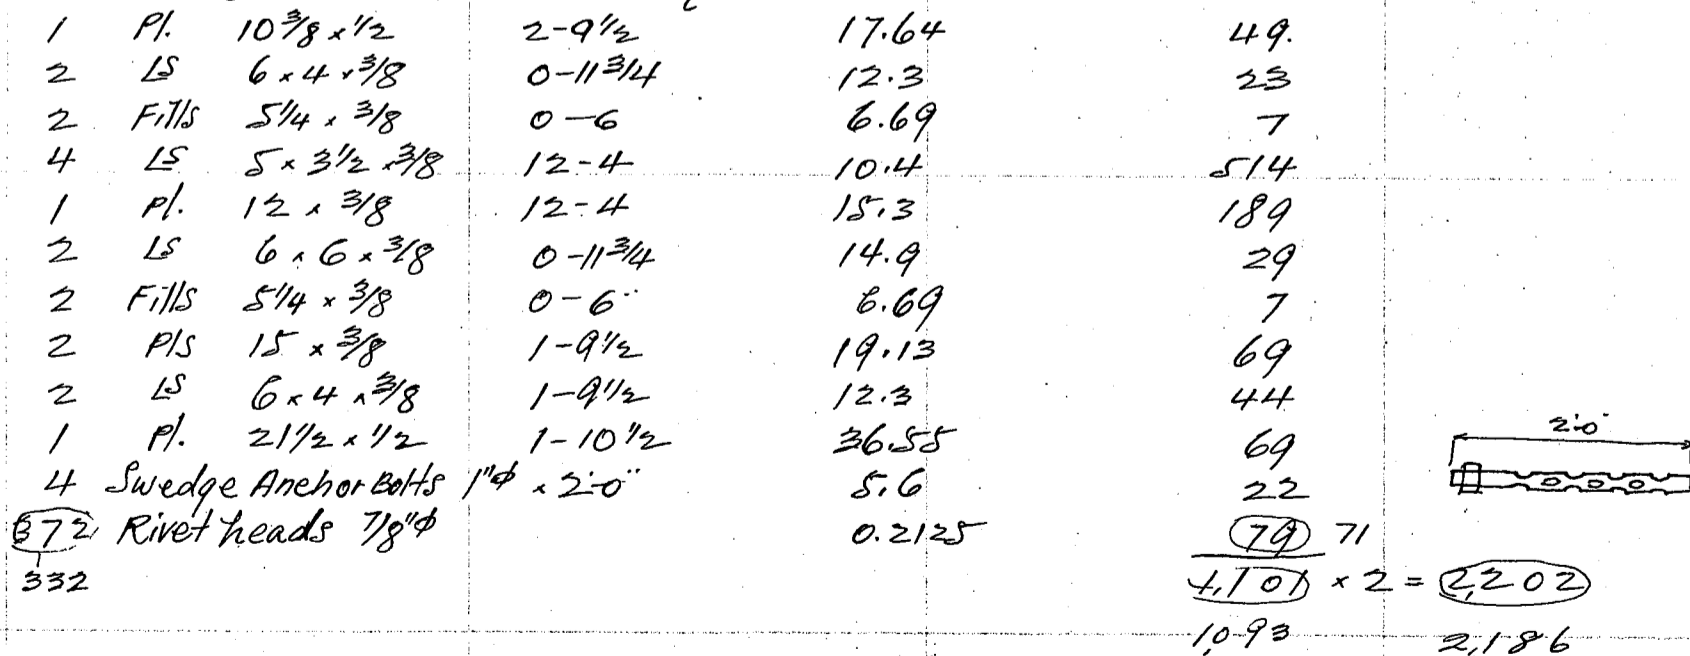 1 Pl. 10 3/8 x 1/2 2-9 1/2 17.64 49.
2 LS 6 x 4 x 3/8 0-11 3/4 12.3 23
2 Fills 5 1/4 x 3/8 0-6 6.69 7
4 LS 5 x 3 1/2 x 3/8 12-4 10.4 514
1 Pl. 12 x 3/8 12-4 15.3 189
2 LS 6 x 6 x 3/8 0-11 3/4 14.9 29
2 Fills 5 1/4 x 3/8 0-6" 6.69 7
2 Pls 15 x 3/8 1-9 1/2 19.13 69
2 LS 6 x 4 x 3/8 1-9 1/2 12.3 44
1 Pl. 21 1/2 x 1/2 1-10 1/2 36.55 69
2'-0"
4 Swedge Anchor Bolts 1"φ x 2'-0" 5.6 22
372 Rivet heads 7/8"φ 0.2125 79 71
332 1,101 x 2 = 2,202
1,093 2,186